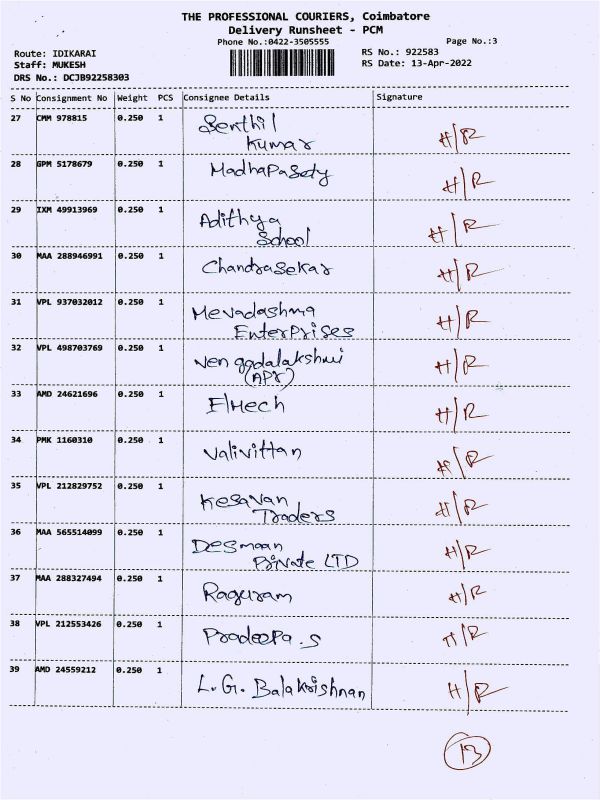 THE PROFESSIONAL COURIERS, Coimbatore
Delivery Runsheet - PCM
Phone No.:0422-3505555
Page No.:3
Route: IDIKARAI
RS No.: 922583
Staff: MUKESH
RS Date: 13-Apr-2022
DRS No.: DCJB92258303
S No Consignment No Weight PCS Consignee Details Signature
27 CMM 978815 0.250 1 Senthil
Kumar H/R
28 GPM 5178679 0.250 1 Madhapasety H/R
29 IXM 49913969 0.250 1 Adithya
School H/R
30 MAA 288946991 0.250 1 Chandrasekar H/R
31 VPL 937032012 0.250 1 Mevadashma
Enterprises H/R
32 VPL 498703769 0.250 1 Vengadalakshmi
(APR) H/R
33 AMD 24621696 0.250 1 ElMech H/R
34 PMK 1160310 0.250 1 Valivittan H/R
35 VPL 212829752 0.250 1 Kesavan
Traders H/R
36 MAA 565514099 0.250 1 Desmaan
Private LTD H/R
37 MAA 288327494 0.250 1 Raguram H/R
38 VPL 212553426 0.250 1 Pradeepa.S H/R
39 AMD 24559212 0.250 1 L.G. Balakrishnan H/R
13